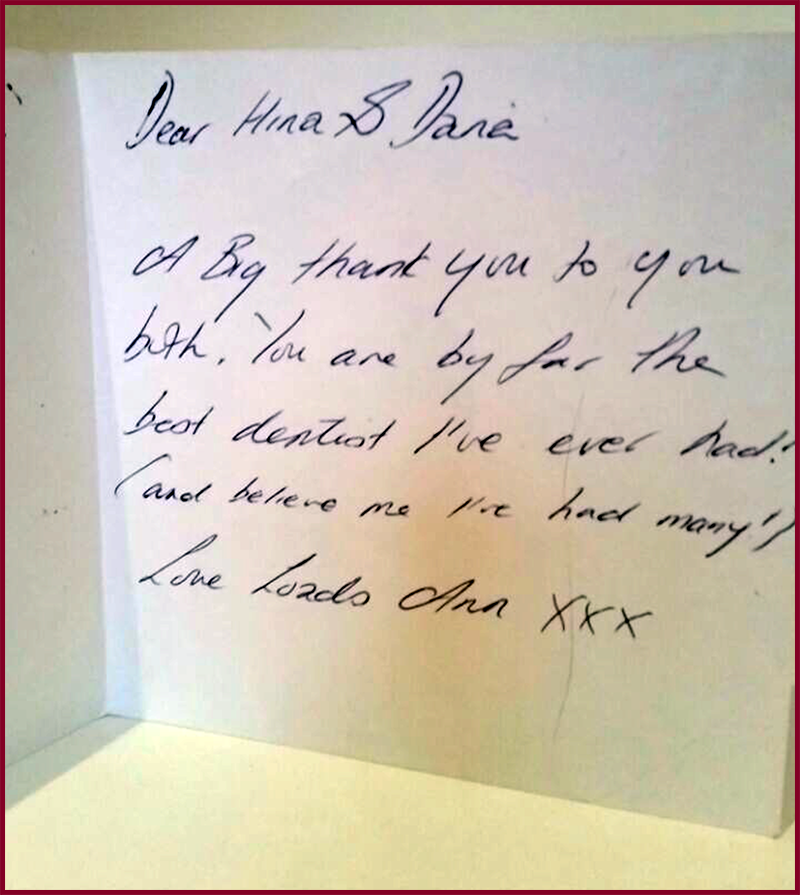 Dear Hina & Daria
A Big thank you to you
both. You are by far the
best dentist I've ever had!
(and believe me I've had many!)
Love Loads Ann xxx